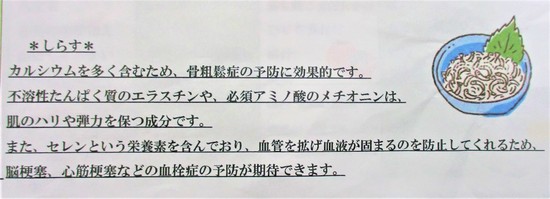 ＊しらす＊
カルシウムを多く含むため、骨粗鬆症の予防に効果的です。
不溶性たんぱく質のエラスチンや、必須アミノ酸のメチオニンは、
肌のハリや弾力を保つ成分です。
また、セレンという栄養素を含んでおり、血管を拡げ血液が固まるのを防止してくれるため、
脳梗塞、心筋梗塞などの血栓症の予防が期待できます。